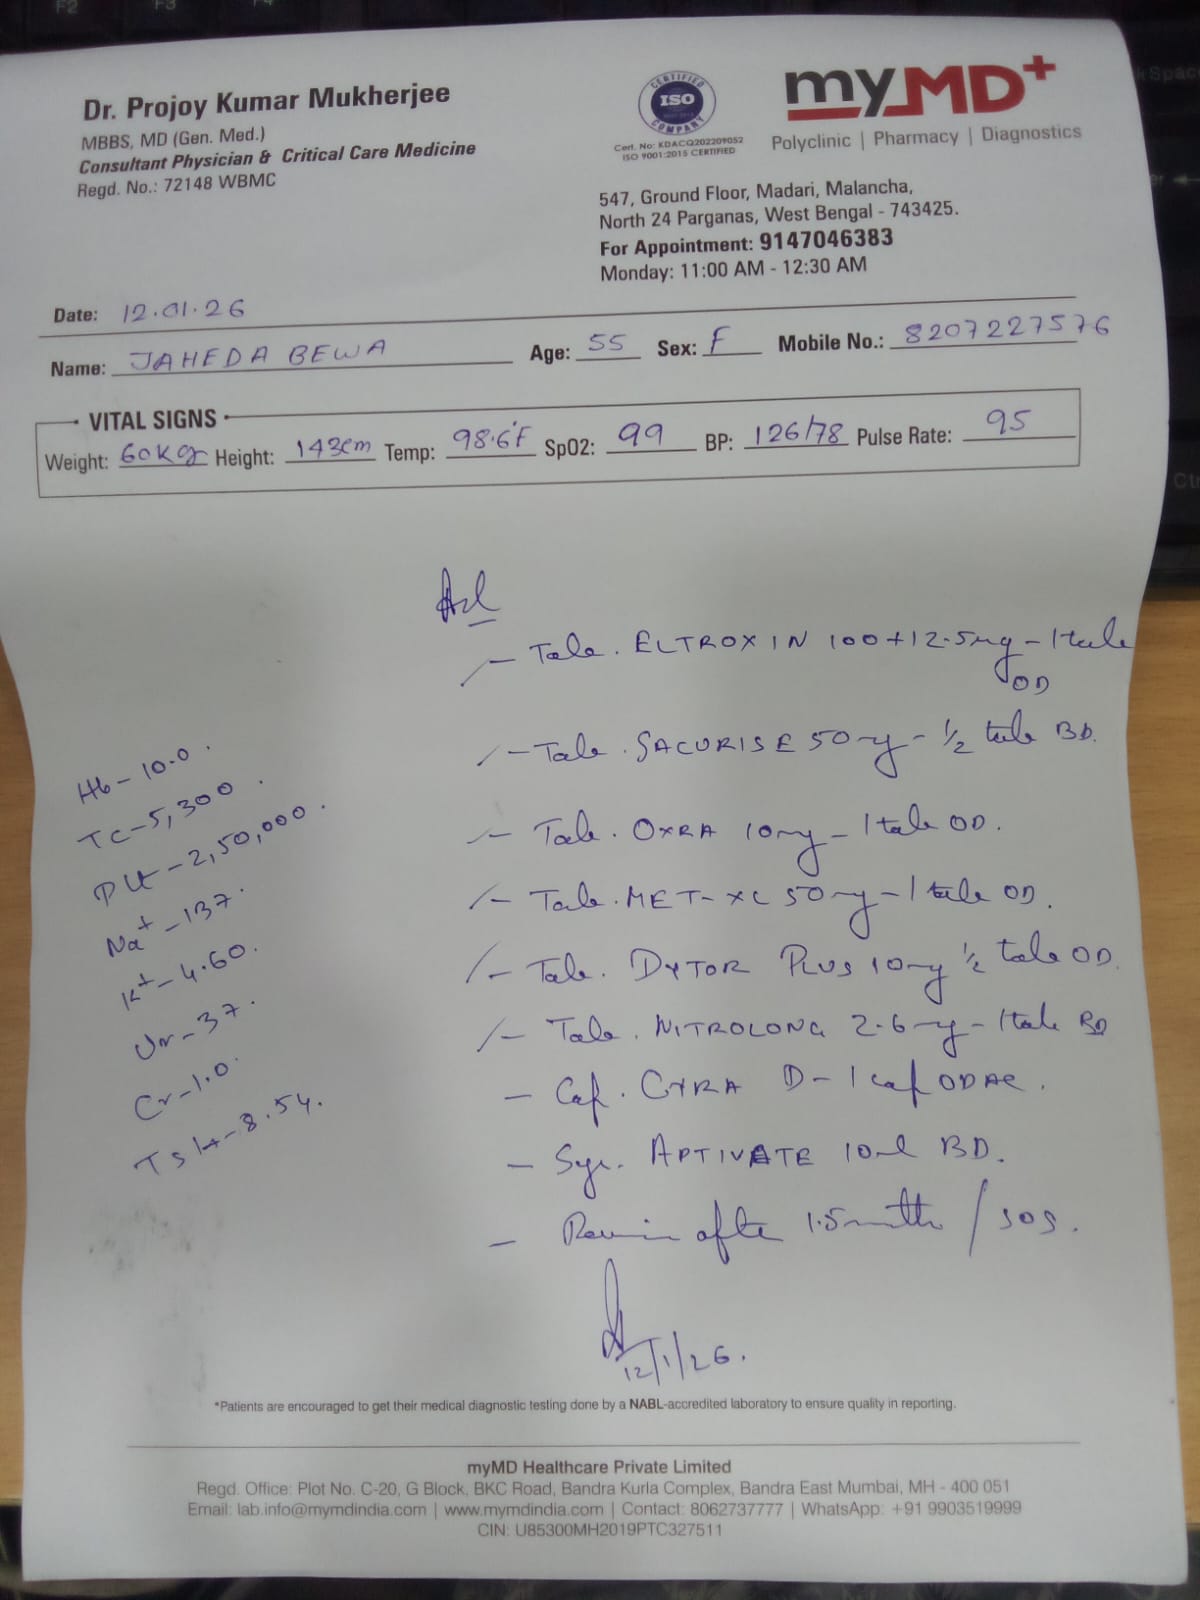 F2 F3 F4
Dr. Projoy Kumar Mukherjee
MBBS, MD (Gen. Med.)
Consultant Physician & Critical Care Medicine
Regd. No.: 72148 WBMC
CERTIFIED
ISO
COMPANY
Cert. No: KDACQ202209052
ISO 9001:2015 CERTIFIED
myMD+
Polyclinic | Pharmacy | Diagnostics
547, Ground Floor, Madari, Malancha,
North 24 Parganas, West Bengal - 743425.
For Appointment: 9147046383
Monday: 11:00 AM - 12:30 AM
Date: 12.01.26
Name: JAHEDA BEWA Age: 55 Sex: F Mobile No.: 8207227576
VITAL SIGNS
Weight: 60Kg Height: 143cm Temp: 98.6°F SpO2: 99 BP: 126/78 Pulse Rate: 95
Adv
- Tab. ELTROXIN 100+12.5mg - 1 tab
OD
- Tab. SACURISE 50mg - 1/2 tab BD.
- Tab. OXRA 10mg - 1 tab OD.
- Tab. MET-XL 50mg - 1 tab OD.
- Tab. DYTOR PLUS 10mg 1/2 tab OD.
- Tab. NITROLONG 2.6mg - 1 tab BD
- Cap. CYRA D - 1 cap ODAC.
- Syr. APTIVATE 10ml BD.
- Review after 1.5 month / SOS.
Hb - 10.0.
Tc - 5,300.
Plt - 2,50,000.
Na+ - 137.
K+ - 4.60.
Ur - 37.
Cr - 1.0.
TSH - 8.54.
12/1/26.
*Patients are encouraged to get their medical diagnostic testing done by a NABL-accredited laboratory to ensure quality in reporting.
myMD Healthcare Private Limited
Regd. Office: Plot No. C-20, G Block, BKC Road, Bandra Kurla Complex, Bandra East Mumbai, MH - 400 051
Email: lab.info@mymdindia.com | www.mymdindia.com | Contact: 8062737777 | WhatsApp: +91 9903519999
CIN: U85300MH2019PTC327511